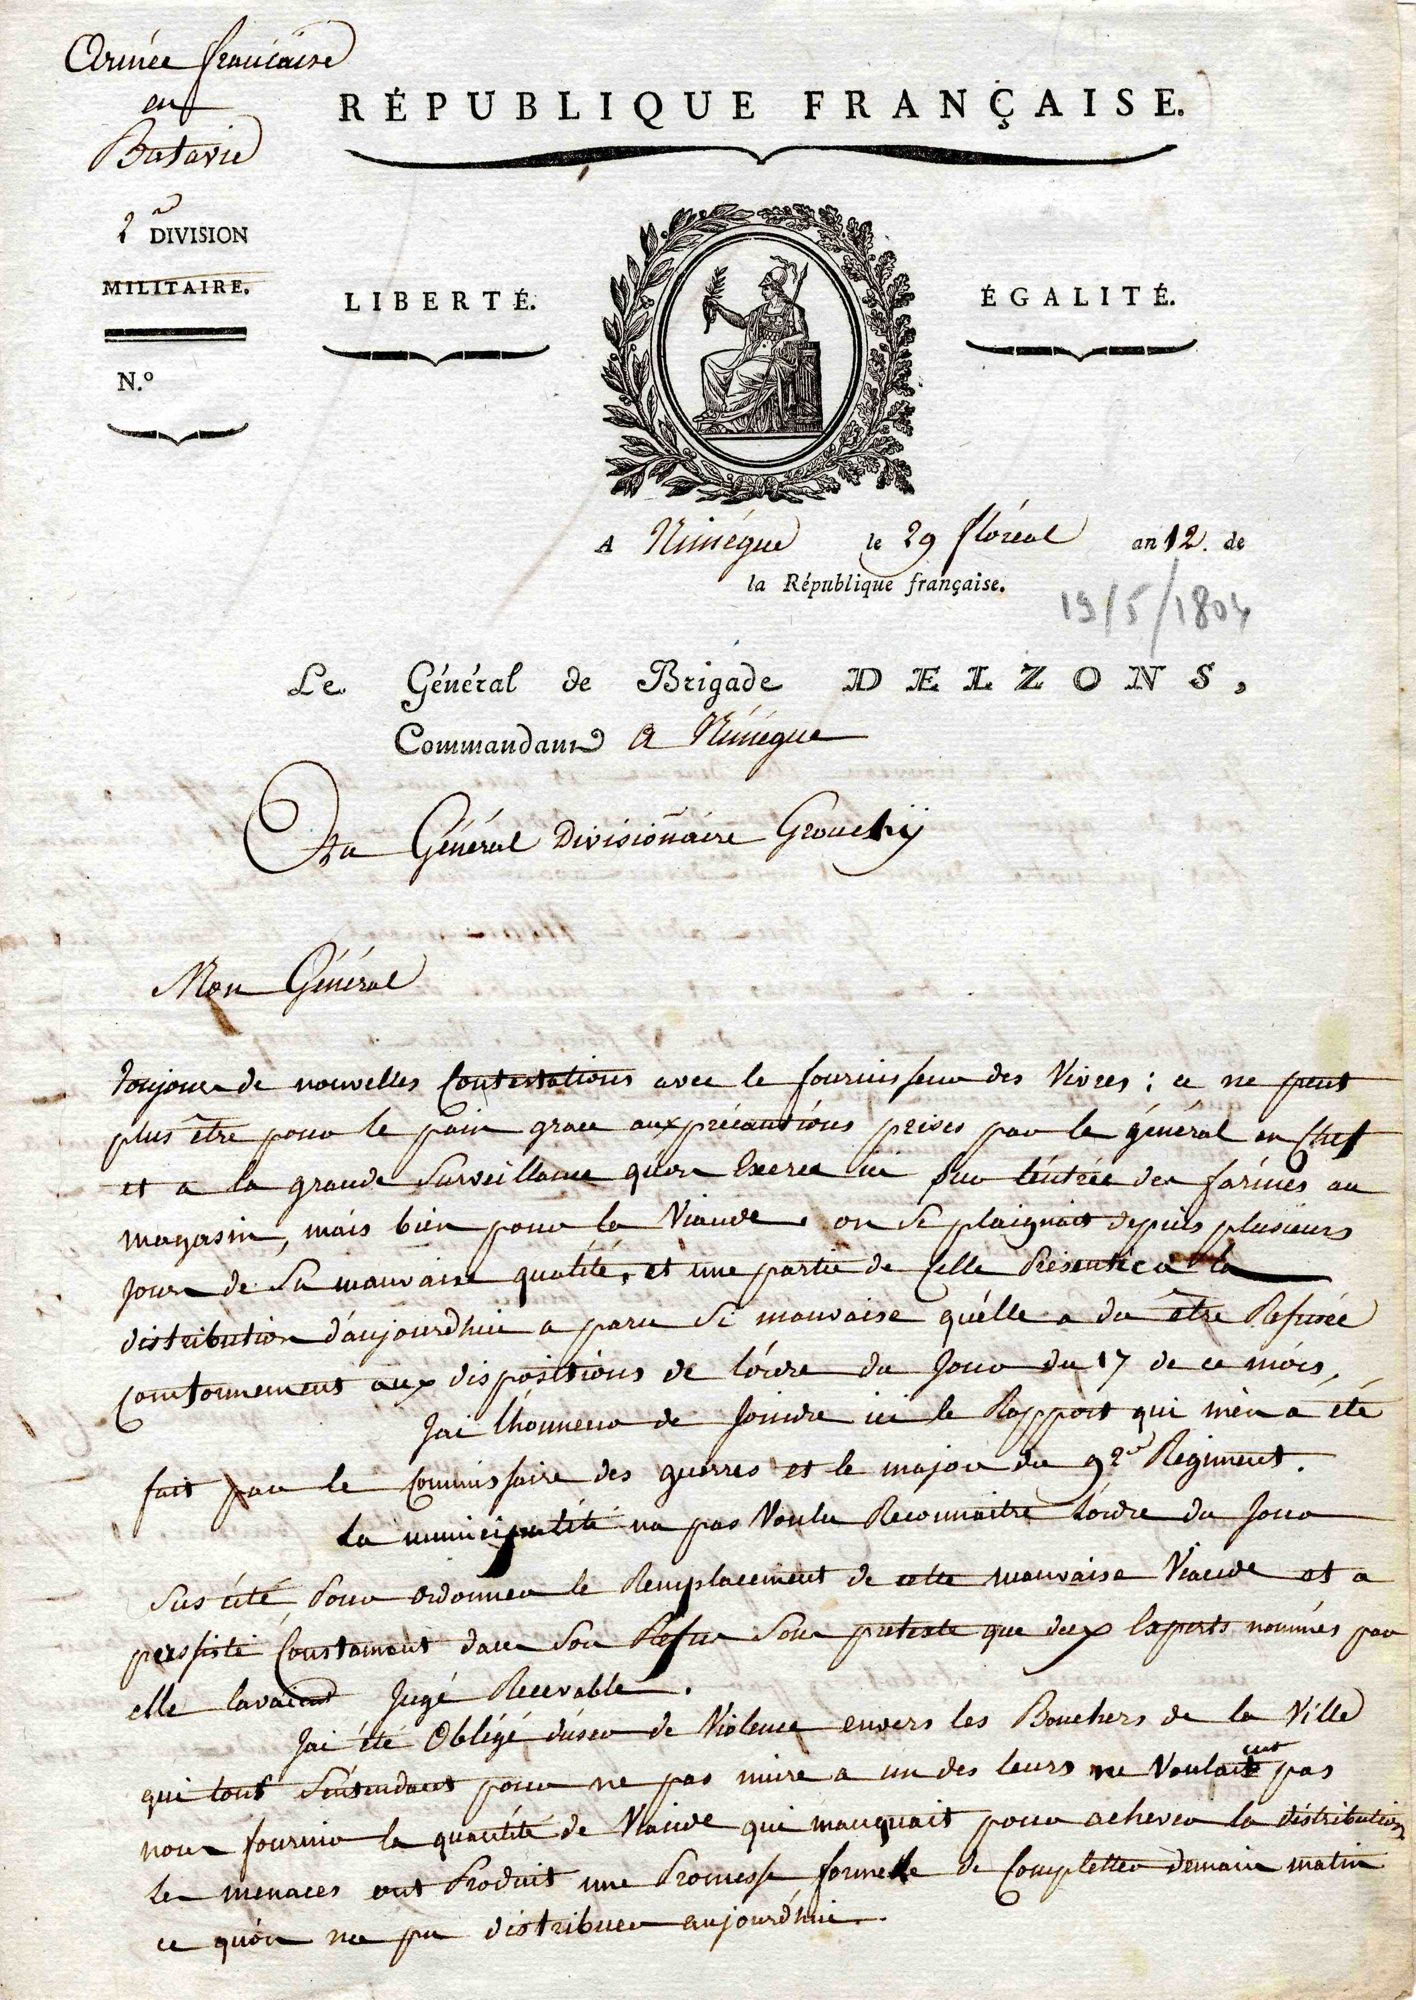 Armée française
en
Batavie
RÉPUBLIQUE FRANÇAISE.
2e DIVISION
MILITAIRE.
N.o
LIBERTÉ.
ÉGALITÉ.
A Nimégue le 29 floréal an 12. de
la République française.
19/5/1804
Le Général de Brigade DELZONS,
Commandant a Nimégue
Au Général Divisionnaire Grouchÿ
Mon Général
Toujours de nouvelles Contestations avec le fournisseur des Vivres : ce ne peut
plus être pour le pain grace aux précautions prises par le général en Chef
et a la grande Surveillance qu'on Exerce ici sur l'éntrée des farines au
magasin, mais bien pour la Viande. on se plaignait depuis plusieurs
Jours de Sa mauvaise qualité, et une partie de Celle Présentée a la
distribution d'aujourdhui a paru Si mauvaise qu'élle a du être Refusée
Conformement aux dispositions de l'órdre du Jour du 17 de ce mois,
Jai lhonneur de Joindre ici le Rapport qui m'én a été
fait par le Commissaire des guerres et le major du 92e Régiment.
La municipalité na pas Voulu Reconnaitre l'órdre du Jour
Sus cité Pour ordonner le Remplacement de cette mauvaise Viande et a
persisté Constament dans Son Refus Sous pretexte que deux Experts nommés par
elle lavaient Jugé Recevable.
Jai été Obligé d'úser de Violence envers les Bouchers de la Ville
qui tous S'éntendaient pour ne pas nuire a un des leurs ne Voulaient pas
nous fournir la quantité de Viande qui manquait pour achever la distribution
les menaces ont Produit une Promesse formelle de Completter demain matin
ce qu'ón na pu distribuer aujourd'hui.